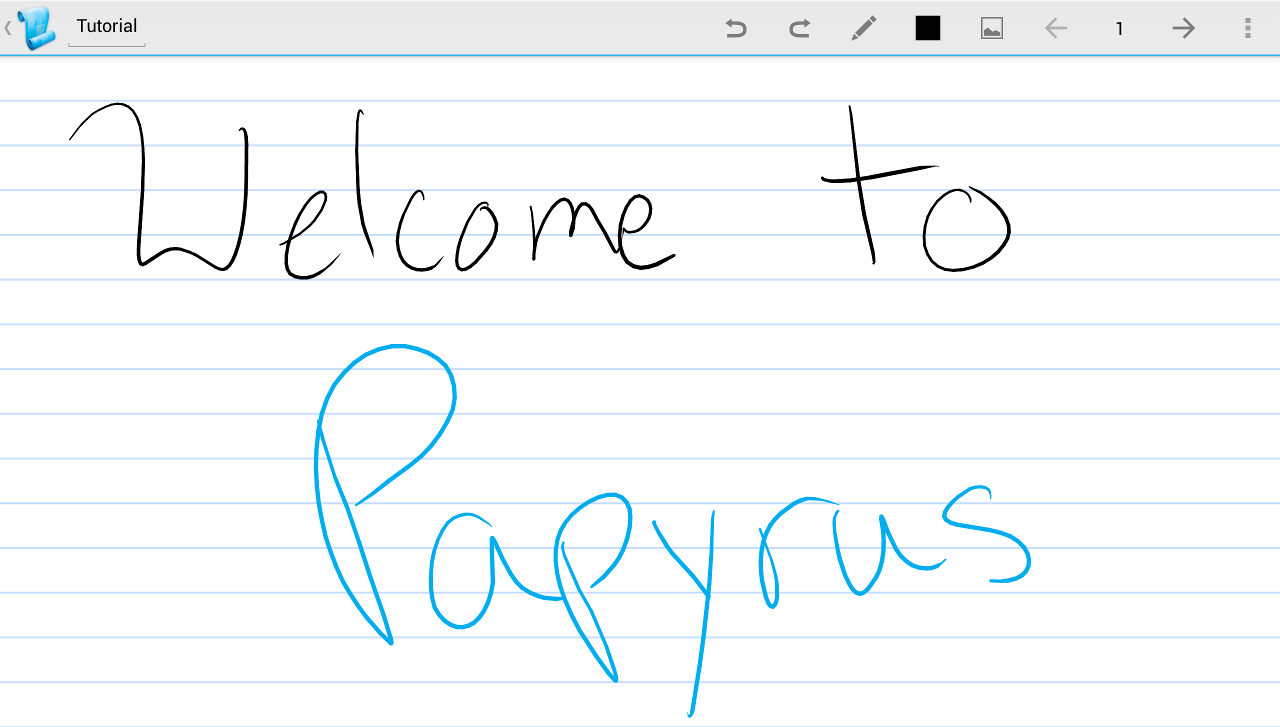 Tutorial
1
Welcome to
Papyrus